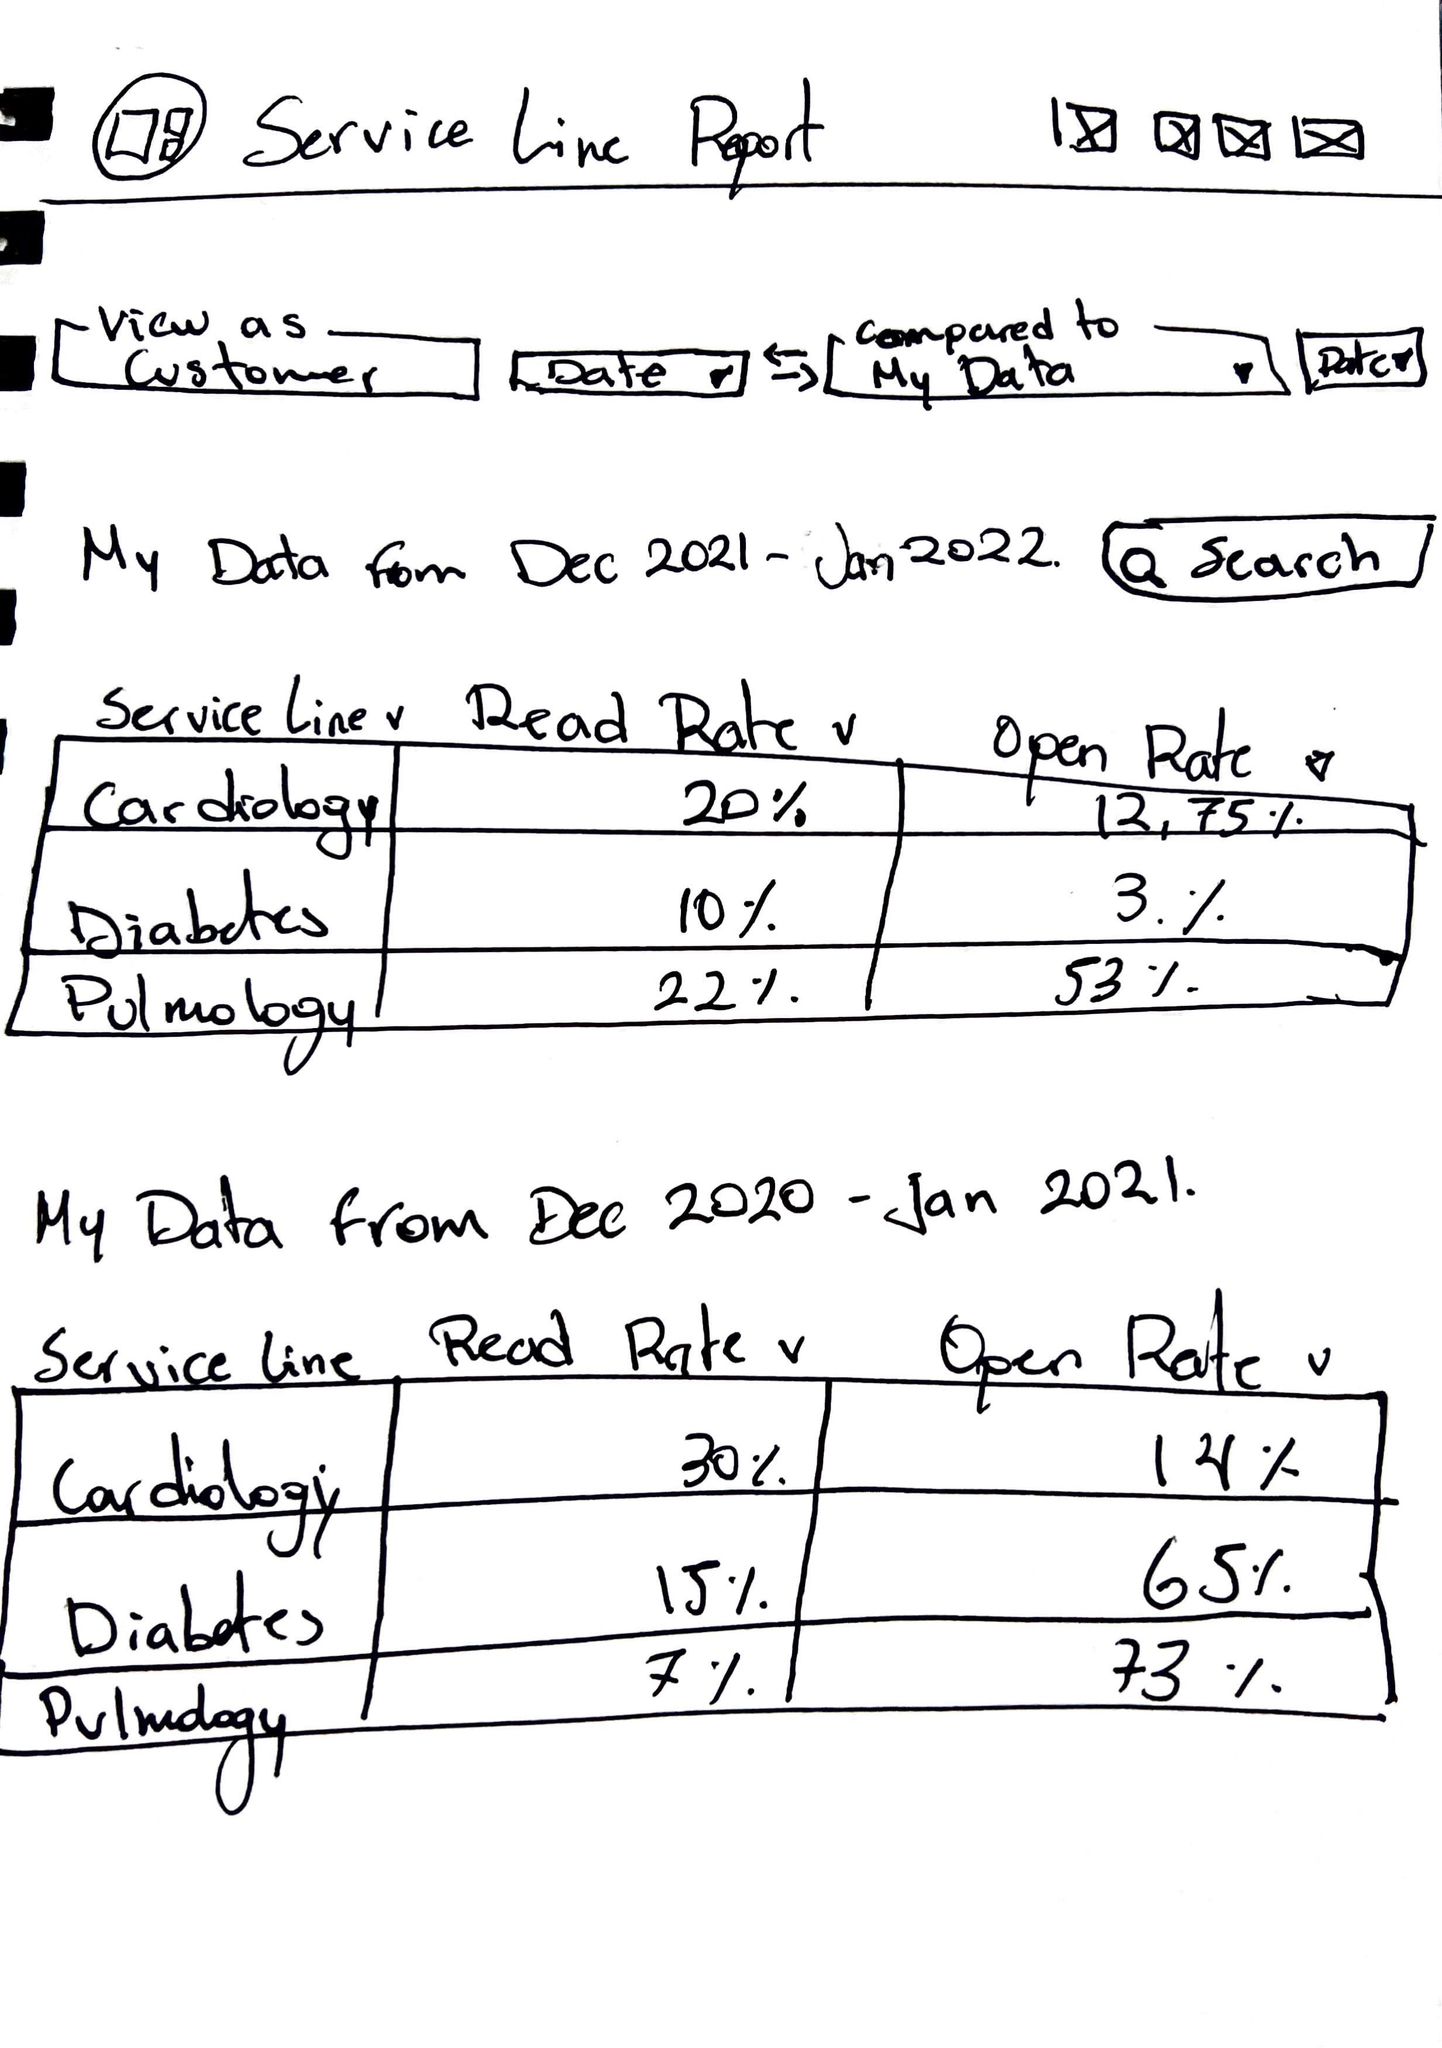 Service Line Report
View as
Customer
Date
Compared to
My Data
Date
My Data from Dec 2021 - Jan 2022.
Search
Service Line Read Rate Open Rate
Cardiology 20% 12,75%
Diabetes 10% 3.%
Pulmology 22% 53%
My Data from Dec 2020 - Jan 2021.
Service Line Read Rate Open Rate
Cardiology 30% 14%
Diabetes 15% 65%
Pulmology 7% 73%